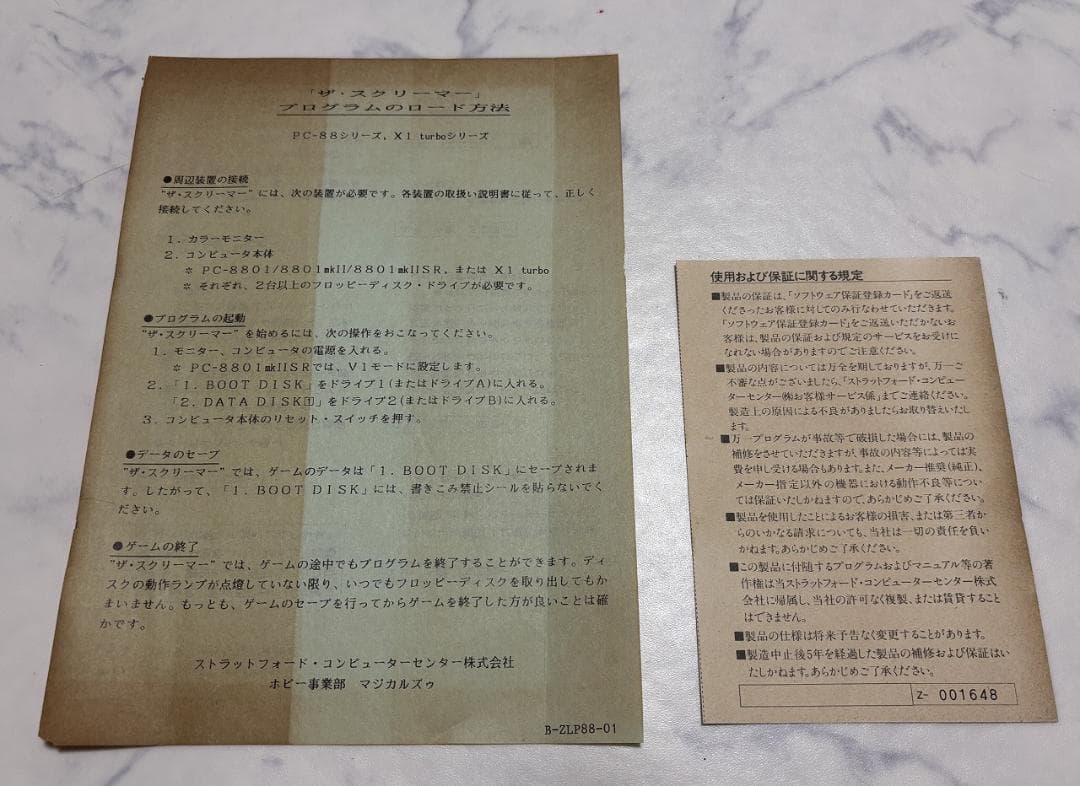 「ザ・スクリーマー」
プログラムのロード方法
PC-88シリーズ，X1 turboシリーズ
●周辺装置の接続
"ザ・スクリーマー"には、次の装置が必要です。各装置の取扱い説明書に従って、正しく
接続してください。
1．カラーモニター
2．コンピュータ本体
＊ PC-8801/8801mkII/8801mkIISR，または X1 turbo
＊ それぞれ、2台以上のフロッピーディスク・ドライブが必要です。
●プログラムの起動
"ザ・スクリーマー"を始めるには、次の操作をおこなってください。
1．モニター、コンピュータの電源を入れる。
＊ PC-8801mkIISRでは、V1モードに設定します。
2．「1．BOOT DISK」をドライブ1(またはドライブA)に入れる。
「2．DATA DISK①」をドライブ2(またはドライブB)に入れる。
3．コンピュータ本体のリセット・スイッチを押す。
●データのセーブ
"ザ・スクリーマー"では、ゲームのデータは「1．BOOT DISK」にセーブされま
す。したがって、「1．BOOT DISK」には、書きこみ禁止シールを貼らないでく
ださい。
●ゲームの終了
"ザ・スクリーマー"では、ゲームの途中でもプログラムを終了することができます。ディ
スクの動作ランプが点燈していない限り、いつでもフロッピーディスクを取り出してもか
まいません。もっとも、ゲームのセーブを行ってからゲームを終了した方が良いことは確
かです。
ストラットフォード・コンピューターセンター株式会社
ホビー事業部　マジカルズゥ
B-ZLP88-01
使用および保証に関する規定
■製品の保証は、「ソフトウェア保証登録カード」をご返送
くださったお客様に対してのみ行なわせていただきます。
「ソフトウェア保証登録カード」をご返送いただかないお
客様は、製品の保証および規定のサービスをお受けに
なれない場合がありますのでご注意ください。
■製品の内容については万全を期しておりますが、万一ご
不審な点がございましたら、「ストラットフォード・コンピュー
ターセンター㈱お客様サービス係」までご連絡ください。
製造上の原因による不良がありましたらお取り替えいたし
ます。
■万一プログラムが事故等で破損した場合には、製品の
補修をさせていただきますが、事故の内容等によっては実
費を申し受ける場合もあります。また、メーカー推奨(純正)、
メーカー指定以外の機器における動作不良等につい
ては保証いたしかねますので、あらかじめご了承ください。
■製品を使用したことによるお客様の損害、または第三者か
らのいかなる請求についても、当社は一切の責任を負い
かねます。あらかじめご了承ください。
■この製品に付随するプログラムおよびマニュアル等の著
作権は当ストラットフォード・コンピューターセンター株式
会社に帰属し、当社の許可なく複製、または賃貸すること
はできません。
■製品の仕様は将来予告なく変更することがあります。
■製造中止後5年を経過した製品の補修および保証はい
たしかねます。あらかじめご了承ください。
Z- 001648